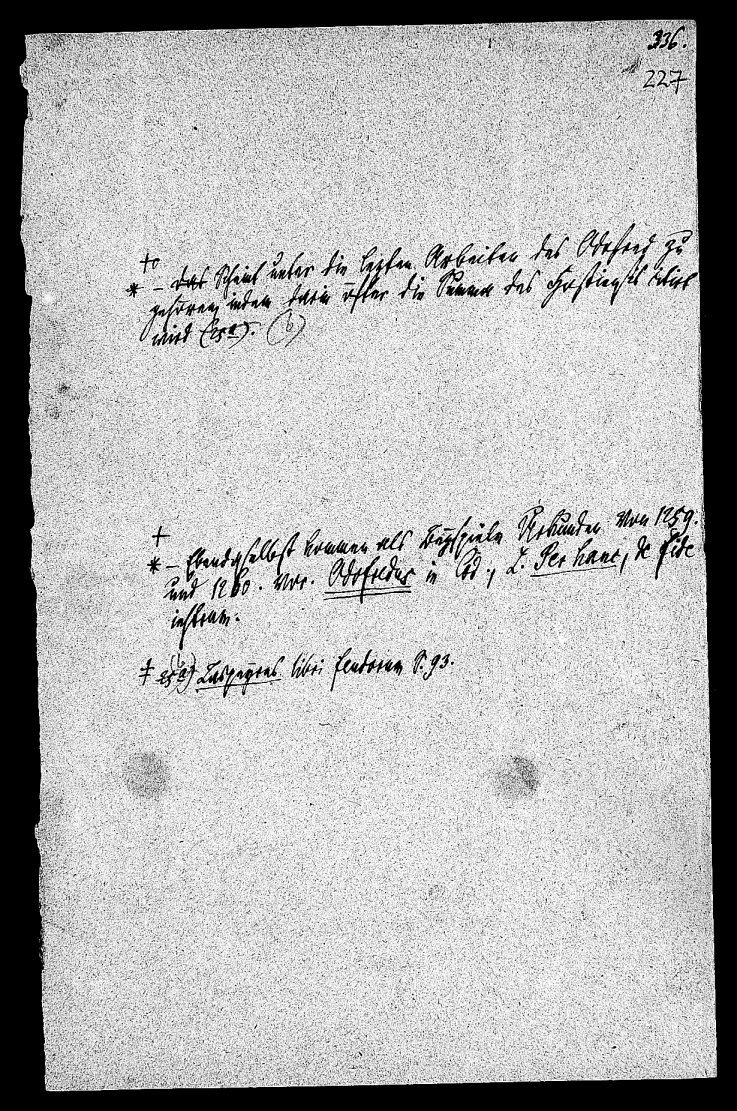 336.
227
+o
* – das scheint unter die letzten Arbeiten des Odofred zu
gehören, indem darin öfter die Summa des Hostiensis citirt
wird (25 a). (b)
+
* – Ebendaselbst kommen als Beyspiele Urkunden von 1259.
und 1260. vor. Odofredus in Cod., L. Per hanc, de fide
instrum.
‡ 25 a) Laspeyres libri feudorum S. 93.